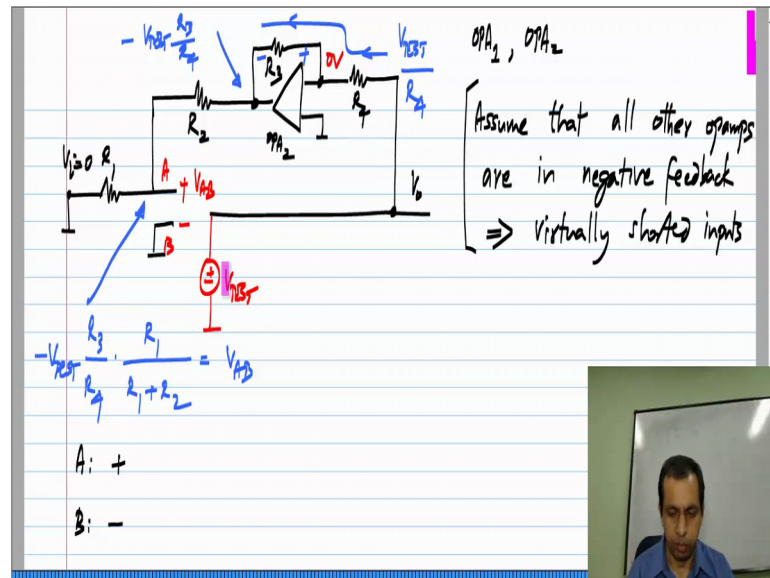 - V_TEST R_3 / R_4
R_3
- +
0V
V_TEST / R_4
R_4
R_2
OPA_2
V_i=0 R_1
A + V_AB
B -
V_o
± V_TEST
-V_TEST R_3 / R_4 · R_1 / R_1 + R_2 = V_AB
A: +
B: -
OPA_1, OPA_2
Assume that all other opamps
are in negative feedback
⇒ virtually shorted inputs